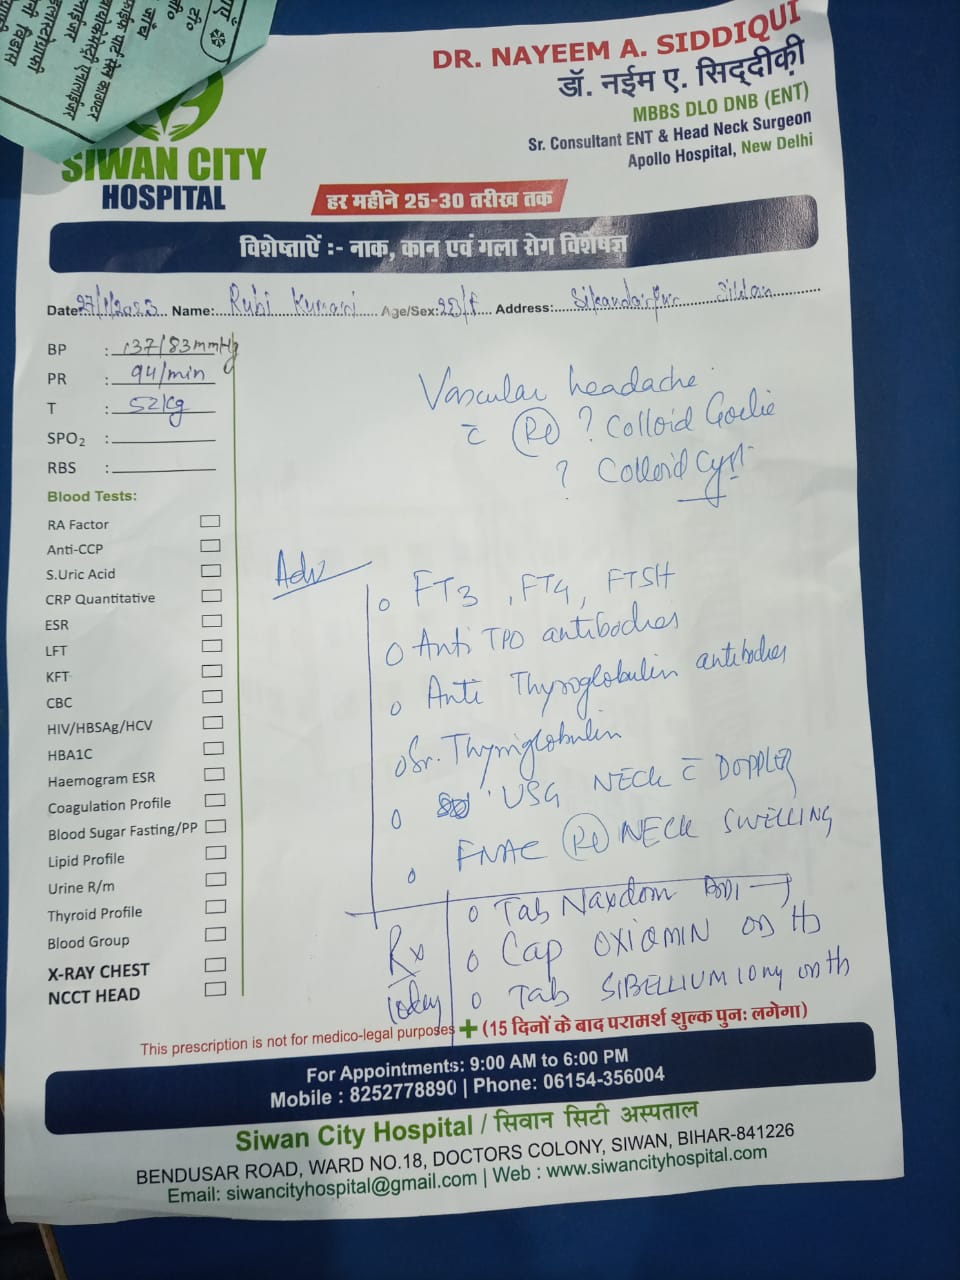 DR. NAYEEM A. SIDDIQUI
डॉ. नईम ए. सिद्दीक़ी
MBBS DLO DNB (ENT)
Sr. Consultant ENT & Head Neck Surgeon
Apollo Hospital, New Delhi
SIWAN CITY
HOSPITAL
हर महीने 25-30 तारीख तक
विशेष्ताऐं :- नाक, कान एवं गला रोग विशेषज्ञ
Date: 27/1/2023 Name: Ruhi Kumari Age/Sex: /F Address: Sikandarpur Siwan
BP : 137/83mmHg
PR : 94/min
T : 52kg
SPO2 :
RBS :
Vascular headache
c̄ (Rt) ? Colloid Goitre
? Colloid Cyst
Blood Tests:
RA Factor
Anti-CCP
S.Uric Acid
CRP Quantitative
ESR
LFT
KFT
CBC
HIV/HBSAg/HCV
HBA1C
Haemogram ESR
Coagulation Profile
Blood Sugar Fasting/PP
Lipid Profile
Urine R/m
Thyroid Profile
Blood Group
X-RAY CHEST
NCCT HEAD
Adv
FT3, FT4, FTSH
Anti TPO antibodies
Anti Thyroglobulin antibodies
Sr. Thyroglobulin
USG NECK c̄ DOPPLER
FNAC (Rt) NECK SWELLING
Rx
today
Tab Naxdom
Cap OXIQMIN OD
Tab SIBELLIUM 10mg
This prescription is not for medico-legal purposes + (15 दिनों के बाद परामर्श शुल्क पुनः लगेगा)
For Appointments: 9:00 AM to 6:00 PM
Mobile : 8252778890 | Phone: 06154-356004
Siwan City Hospital / सिवान सिटी अस्पताल
BENDUSAR ROAD, WARD NO.18, DOCTORS COLONY, SIWAN, BIHAR-841226
Email: siwancityhospital@gmail.com | Web : www.siwancityhospital.com